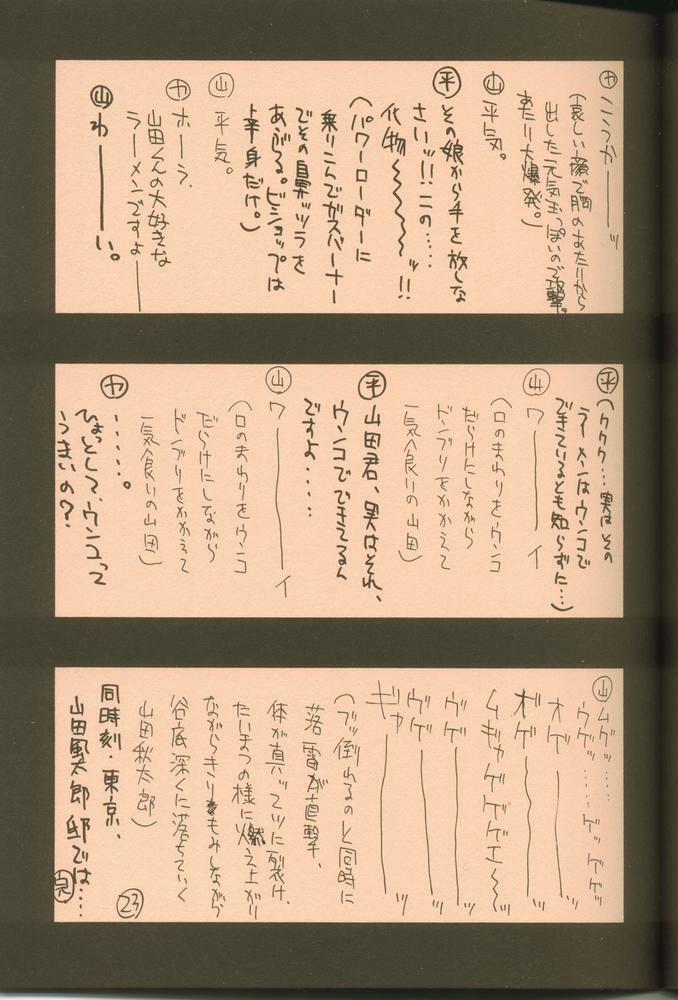 ヤ こうか――――ッ
(哀しい顔で胸のあたりから
出した元気玉っぽいので攻撃。
あたり大爆発。)
山 平気。
平 その娘から手を放しな
さいッ!!この……
化物〜〜〜〜ッ!!
(パワーローダーに
乗りこんでガスバーナー
でその鼻ッツラを
あぶる。ビショップは
上半身だけ。)
山 平気。
ヤ ホーラ、
山田くんの大好きな
ラーメンですよ――
山 わ――――い。
平 (ククク…実はその
ラーメンはウンコで
できているとも知らずに…)
山 ワ――――イ
(口のまわりをウンコ
だらけにしながら
ドンブリをかかえて
一気食いの山田)
平 山田君、実はそれ、
ウンコでできてるん
ですよ……
山 ワ――――イ
(口のまわりをウンコ
だらけにしながら
ドンブリをかかえて
一気食いの山田)
ヤ ……。
ひょっとして、ウンコって
うまいの?
山 ムゲッ……
ウゲッ……ゲッゲゲッ
オゲ――――ッ
オゲ――――ッ
ムギャゲゲゲエ〜〜ッ
ウゲ――――ッ
ウゲ――――ッ
ギャ――――ッ
(ブッ倒れるのと同時に
落雷が直撃、
体が真ッ二ツに裂け、
たいまつの様に燃え上がり
ながらきりもみしながら
谷底深くに落ちていく
山田秋太郎)
同時刻・東京、
山田風太郎邸では……
完
23